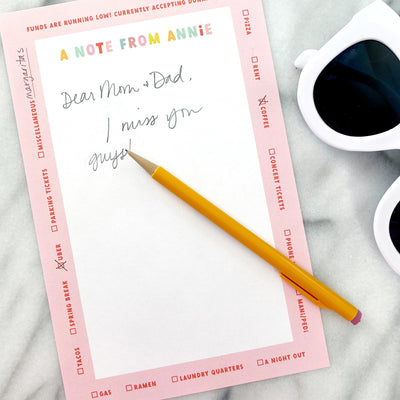 FUNDS ARE RUNNING LOW! CURRENTLY ACCEPTING
A NOTE FROM ANNiE
Dear Mom + Dad,
I miss you
guys!
PIZZA
RENT
COFFEE
CONCERT TICKETS
MANI/PEDI
A NIGHT OUT
LAUNDRY QUARTERS
RAMEN
GAS
TACOS
SPRING BREAK
UBER
PARKING TICKETS
MISCELLANEOUS
margaritas